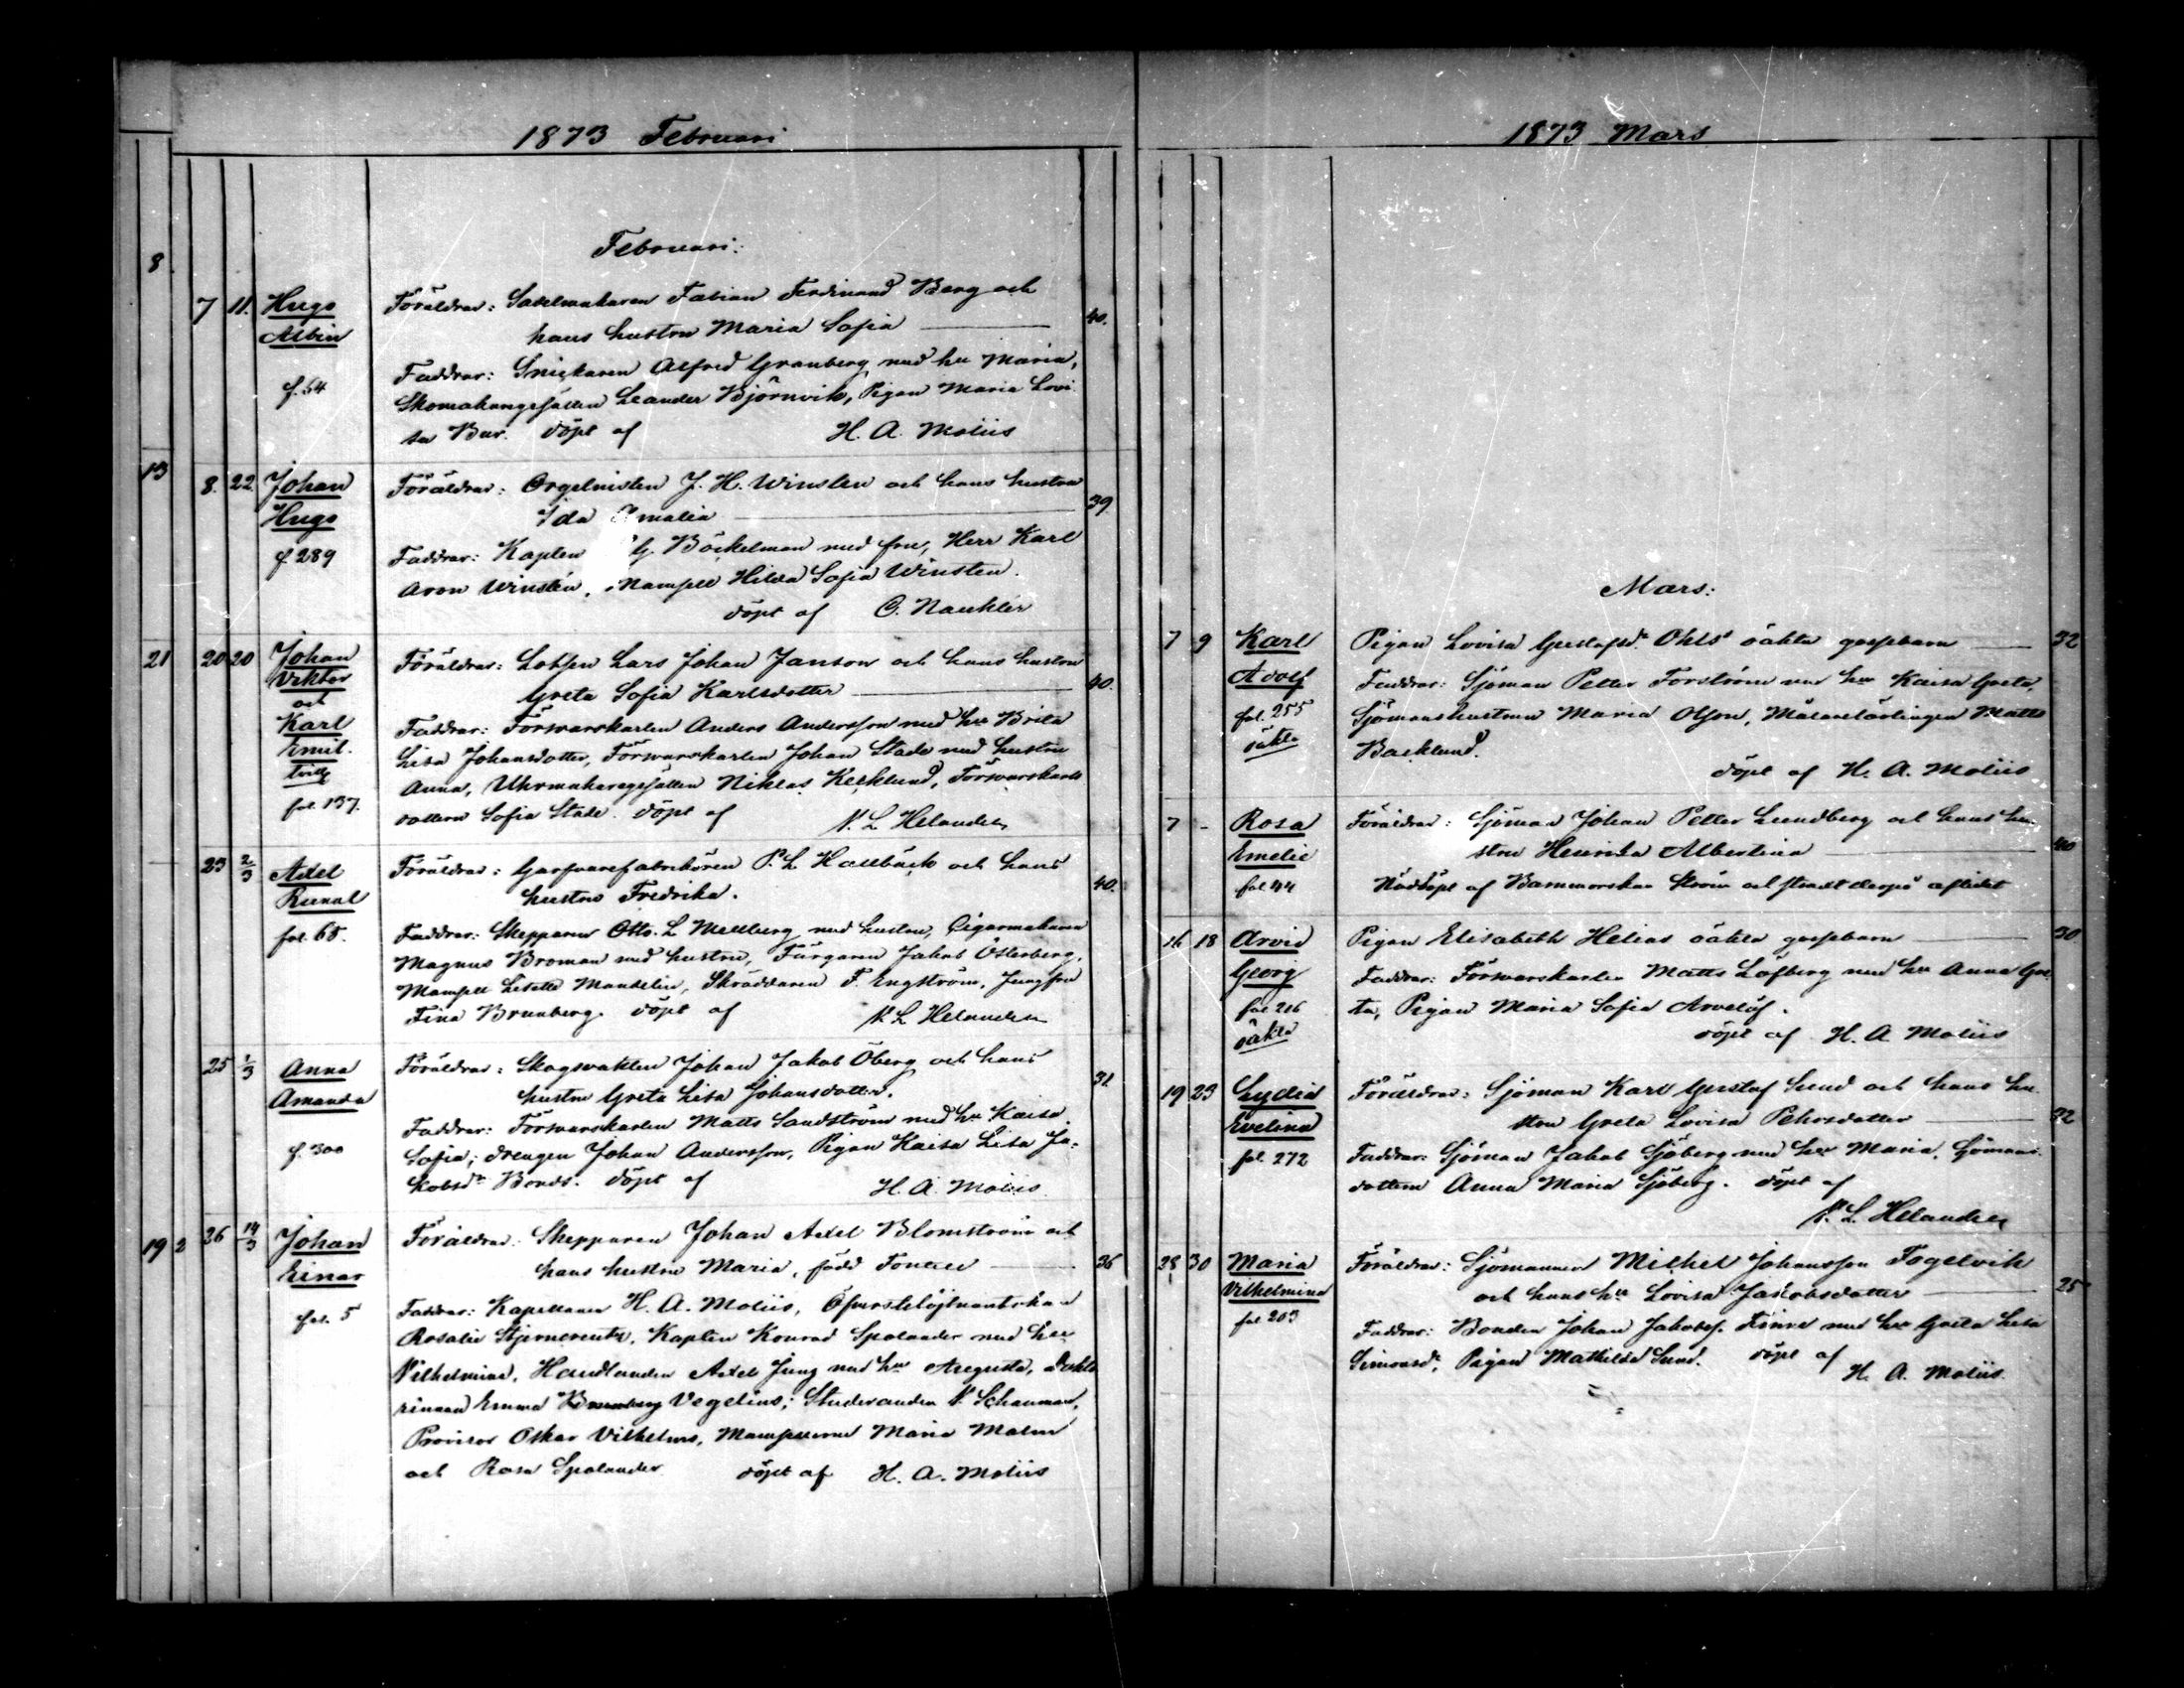 1873 Februari
Februari:
8
7 11. Hugo Albin f. 54
Föräldrar: Sadelmakaren Fabian Ferdinand Berg och
hans hustru Maria Sofia 40.
Faddrar: Snickaren Alfred Granberg med hu Maria,
Skomakaregesällen Leander Björnvik, Pigan Maria Lovi
sa Bur. döpt af H. A. Moliis
13
8. 22. Johan Hugo f 289
Föräldrar: Orgelnisten J. H. Winsten och hans hustru
Ida Amalia 39
Faddrar: Kapten G. Böckelman med fru, Herr Karl
Aron Winstén, Mamsell Hilda Sofia Winsten.
döpt af C. Nauklér
21
20 20 Johan Viktor och Karl Emil. fol. 137.
Föräldrar: Lotsen Lars Johan Janson och hans hustru
Greta Sofia Karlsdotter 40.
Faddrar: Försvarskarlen Anders Andersson med hu Brita
Lisa Johansdotter, Försvarskarlen Johan Stade med hustru
Anna, Uhrmakaregesällen Niklas Kecklund, Försvarskarls
dottern Sofia Stade. döpt af N. L Helander
23 2/3 Axel Runal fol. 68.
Föräldrar: Garfvarefabrikören P. L Hallbäck och hans
hustru Fredrika. 40.
Faddrar: Skepparen Otto. L Mellberg med hustru, Cigarmakaren
Magnus Broman med hustru, Färgaren Jakob Österberg,
Mamsell Lisette Mandelin, Skräddaren F. Engström, Jungfru
Fina Brunberg. döpt af N. L Helander
25 1/3 Anna Amanda f. 300
Föräldrar: Skogsvakten Johan Jakob Öberg och hans
hustru Greta Lisa Johansdotter. 31
Faddrar: Försvarskarlen Matts Sandström med hu Kaisa
Sofia; drengen Johan Andersson, Pigan Kaisa Lisa Ja=
kobsdr Bonds. döpt af H. A. Moliis
19 2
26 14/3 Johan Einar fol. 5
Föräldrar: Skepparen Johan Axel Blomström och
hans hustru Maria, född 26
Faddrar: Kapellanen H. A. Moliis, Öfverstelöjtnantskan
Rosalie Stjerncreutz, Kapten Konrad Spolander med hu
Vilhelmina, Handlanden Axel Jung med hu Augusta, Dokto
rinnan Emma Brunberg Vegelius; Studeranden V. Schauman,
Provisor Oskar Vilhelms, Mamsellerna Maria Malm
och Rosa Spolander döpt af H. A. Moliis
1873 Mars
Mars:
7 9 Karl Adolf fol. 255 oäkta
Pigan Lovisa Gustafsdr Ohls' oäkta gossebarn 32
Faddrar: Sjöman Petter Forström med hu Kaisa Greta,
Sjömanshustrun Maria Olson, Målarelärlingen Matts
Backlund.
döpt af H. A. Moliis
7 - Rosa Emelie fol 44
Föräldrar: Sjöman Johan Petter Lundberg och hans hu-
stru Henrika Albertina 40
Nöddöpt af Barnmorskan Ström och straxt derpå aflidet
16 18 Arvid Georg fol 216 oäkta
Pigan Elisabeth Helias oäkta gossebarn 30
Faddrar: Försvarskarlen Matts Löfberg med hu Anna Gre
ta, Pigan Maria Sofia Arvelöf.
döpt af H. A Moliis
19 23 Lydia Evelina fol. 272
Föräldrar: Sjöman Karl Gustaf Sund och hans hu
stru Greta Lovisa Pehrsdotter 32
Faddrar: Sjöman Jakob Sjöberg med hu Maria, Sjömans
dottern Anna Maria Sjöberg. döpt af
N. L. Helander
28 30 Maria Vilhelmina fol 203
Föräldrar: Sjömannen Michel Johansson Fogelvik
och hans hu Lovisa Jakobsdotter 25
Faddrar: Bonden Johan Jakobss. Finne med hu Greta Lisa
Simonsdr, Pigan Mathilda Sund. döpt af
H. A. Moliis.